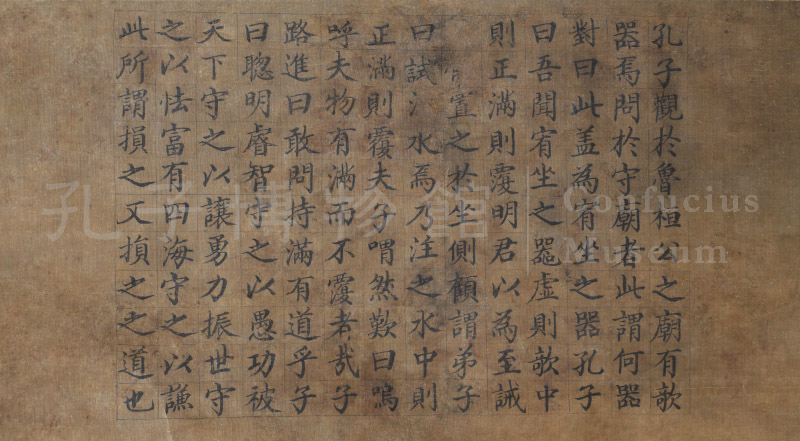 孔子觀於魯桓公之廟有欹
器焉問於守廟者此謂何器
對曰此盖為宥坐之器孔子
曰吾聞宥坐之器虛則欹中
則正滿則覆明君以為至誡
置之於坐側顧謂弟子
曰試水焉乃注之水中則
正滿則覆夫子喟然歎曰嗚
呼夫物有滿而不覆者哉子
路進曰敢問持滿有道乎子
曰聦明睿智守之以愚功被
天下守之以讓勇力振世守
之以怯富有四海守之以謙
此所謂損之又損之之道也
孔子博物館
Confucius
Museum